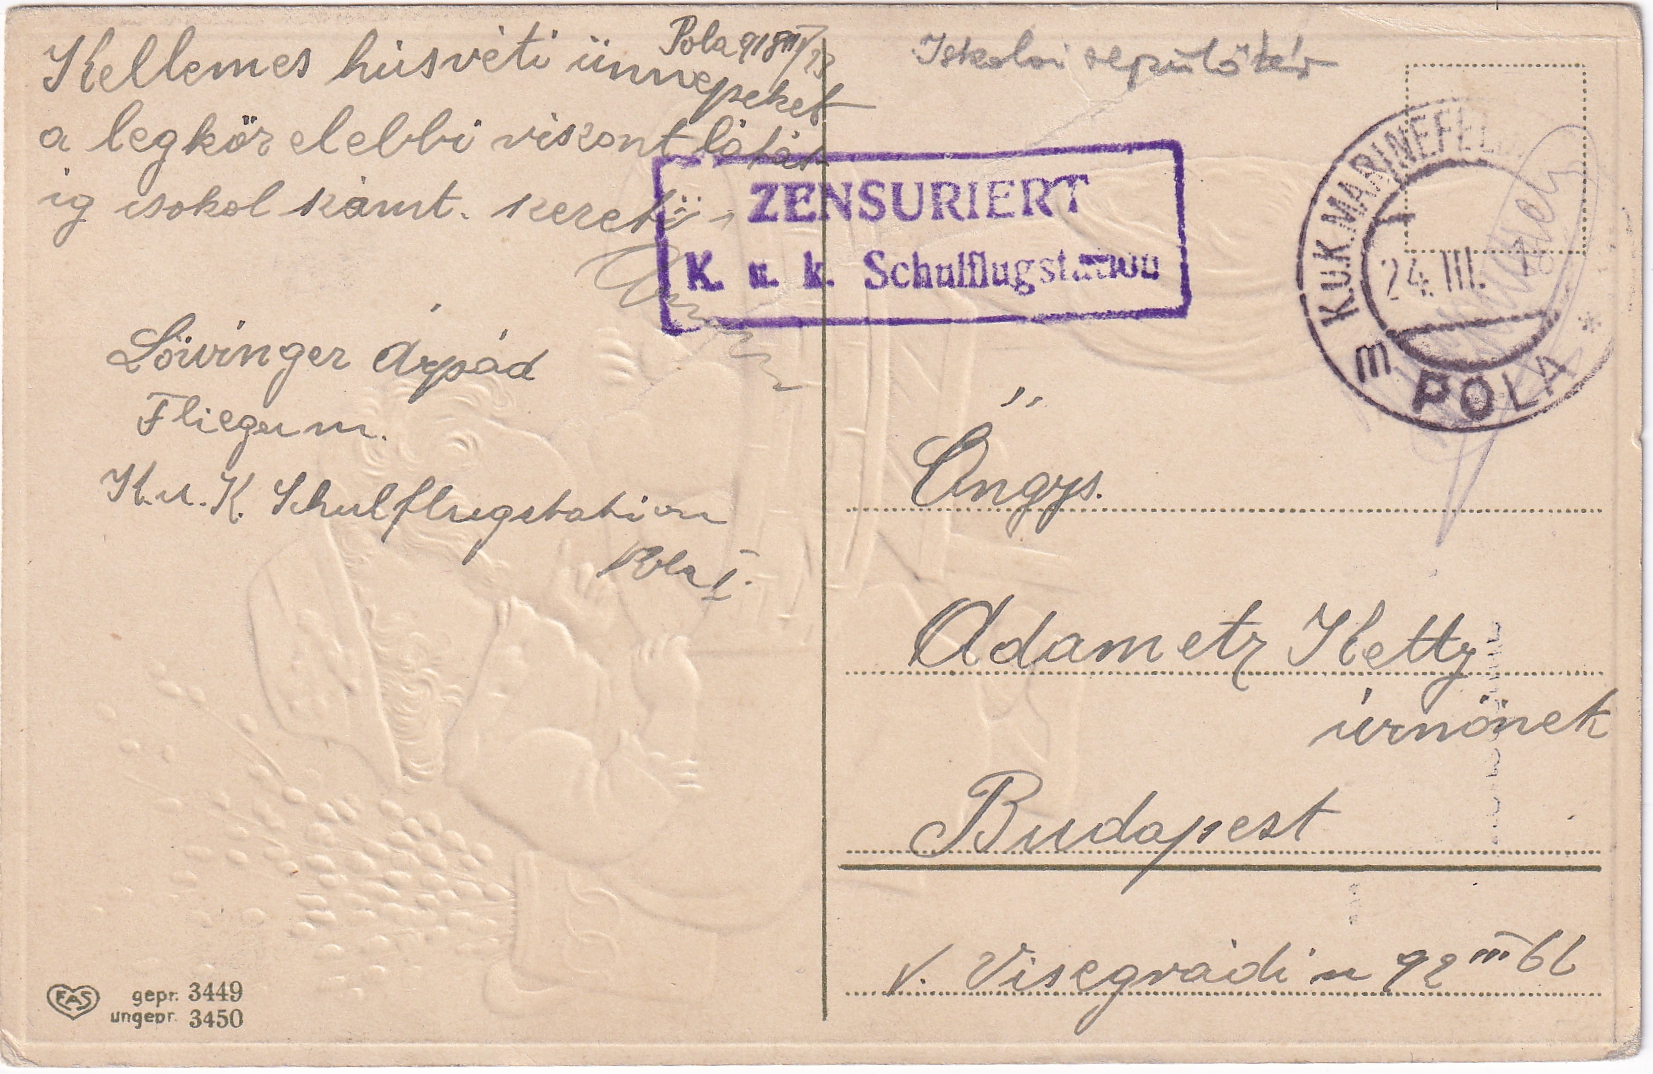 Pola 918 III/23
Kellemes húsvéti ünnepeket
a legkörelebbi viszontlátás
ig isokol kámt.
Löwinger Árpád
Fliegerm.
K. u. K. Schulflugstation
Pola I.
gepr. 3449
ungepr. 3450
FAS
Iskolai repülőtér
ZENSURIERT
K. u. k. Schulflugstation
K.U.K. MARINEFELD
24. III. 18
m POLA *
Őngys.
Adametz Ketty
úrnőnek
Budapest
V. Visegrádi u 92 III 6L